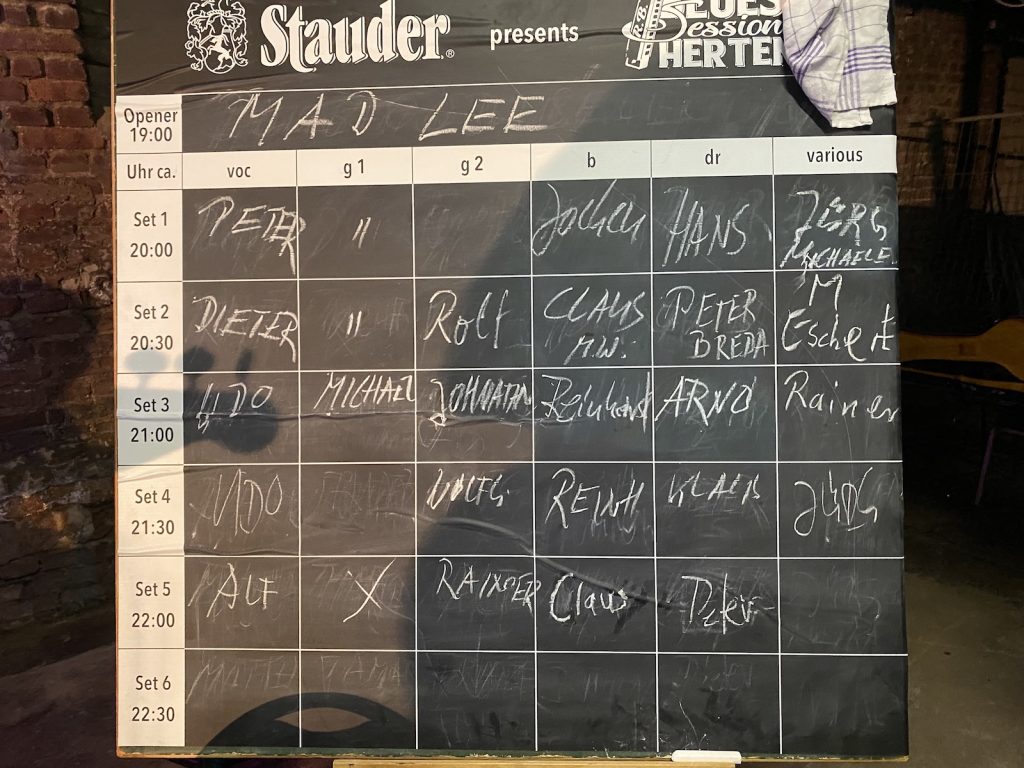 Stauder® presents BLUES Session HERTEN
Opener 19:00 MAD LEE
Uhr ca. voc g 1 g 2 b dr various
Set 1 20:00 PETER " Jochen HANS JÜRG MICHAELE
Set 2 20:30 DIETER " Rolf CLAUS M.W. PETER BREDA M Eschert
Set 3 21:00 UDO MICHAEL JOHNATAN Reinhard ARNO Rainer
Set 4 21:30 UDO WOLFG. REINH KLAUS JÜRG
Set 5 22:00 ALF X RAINER Claus Peter
Set 6 22:30